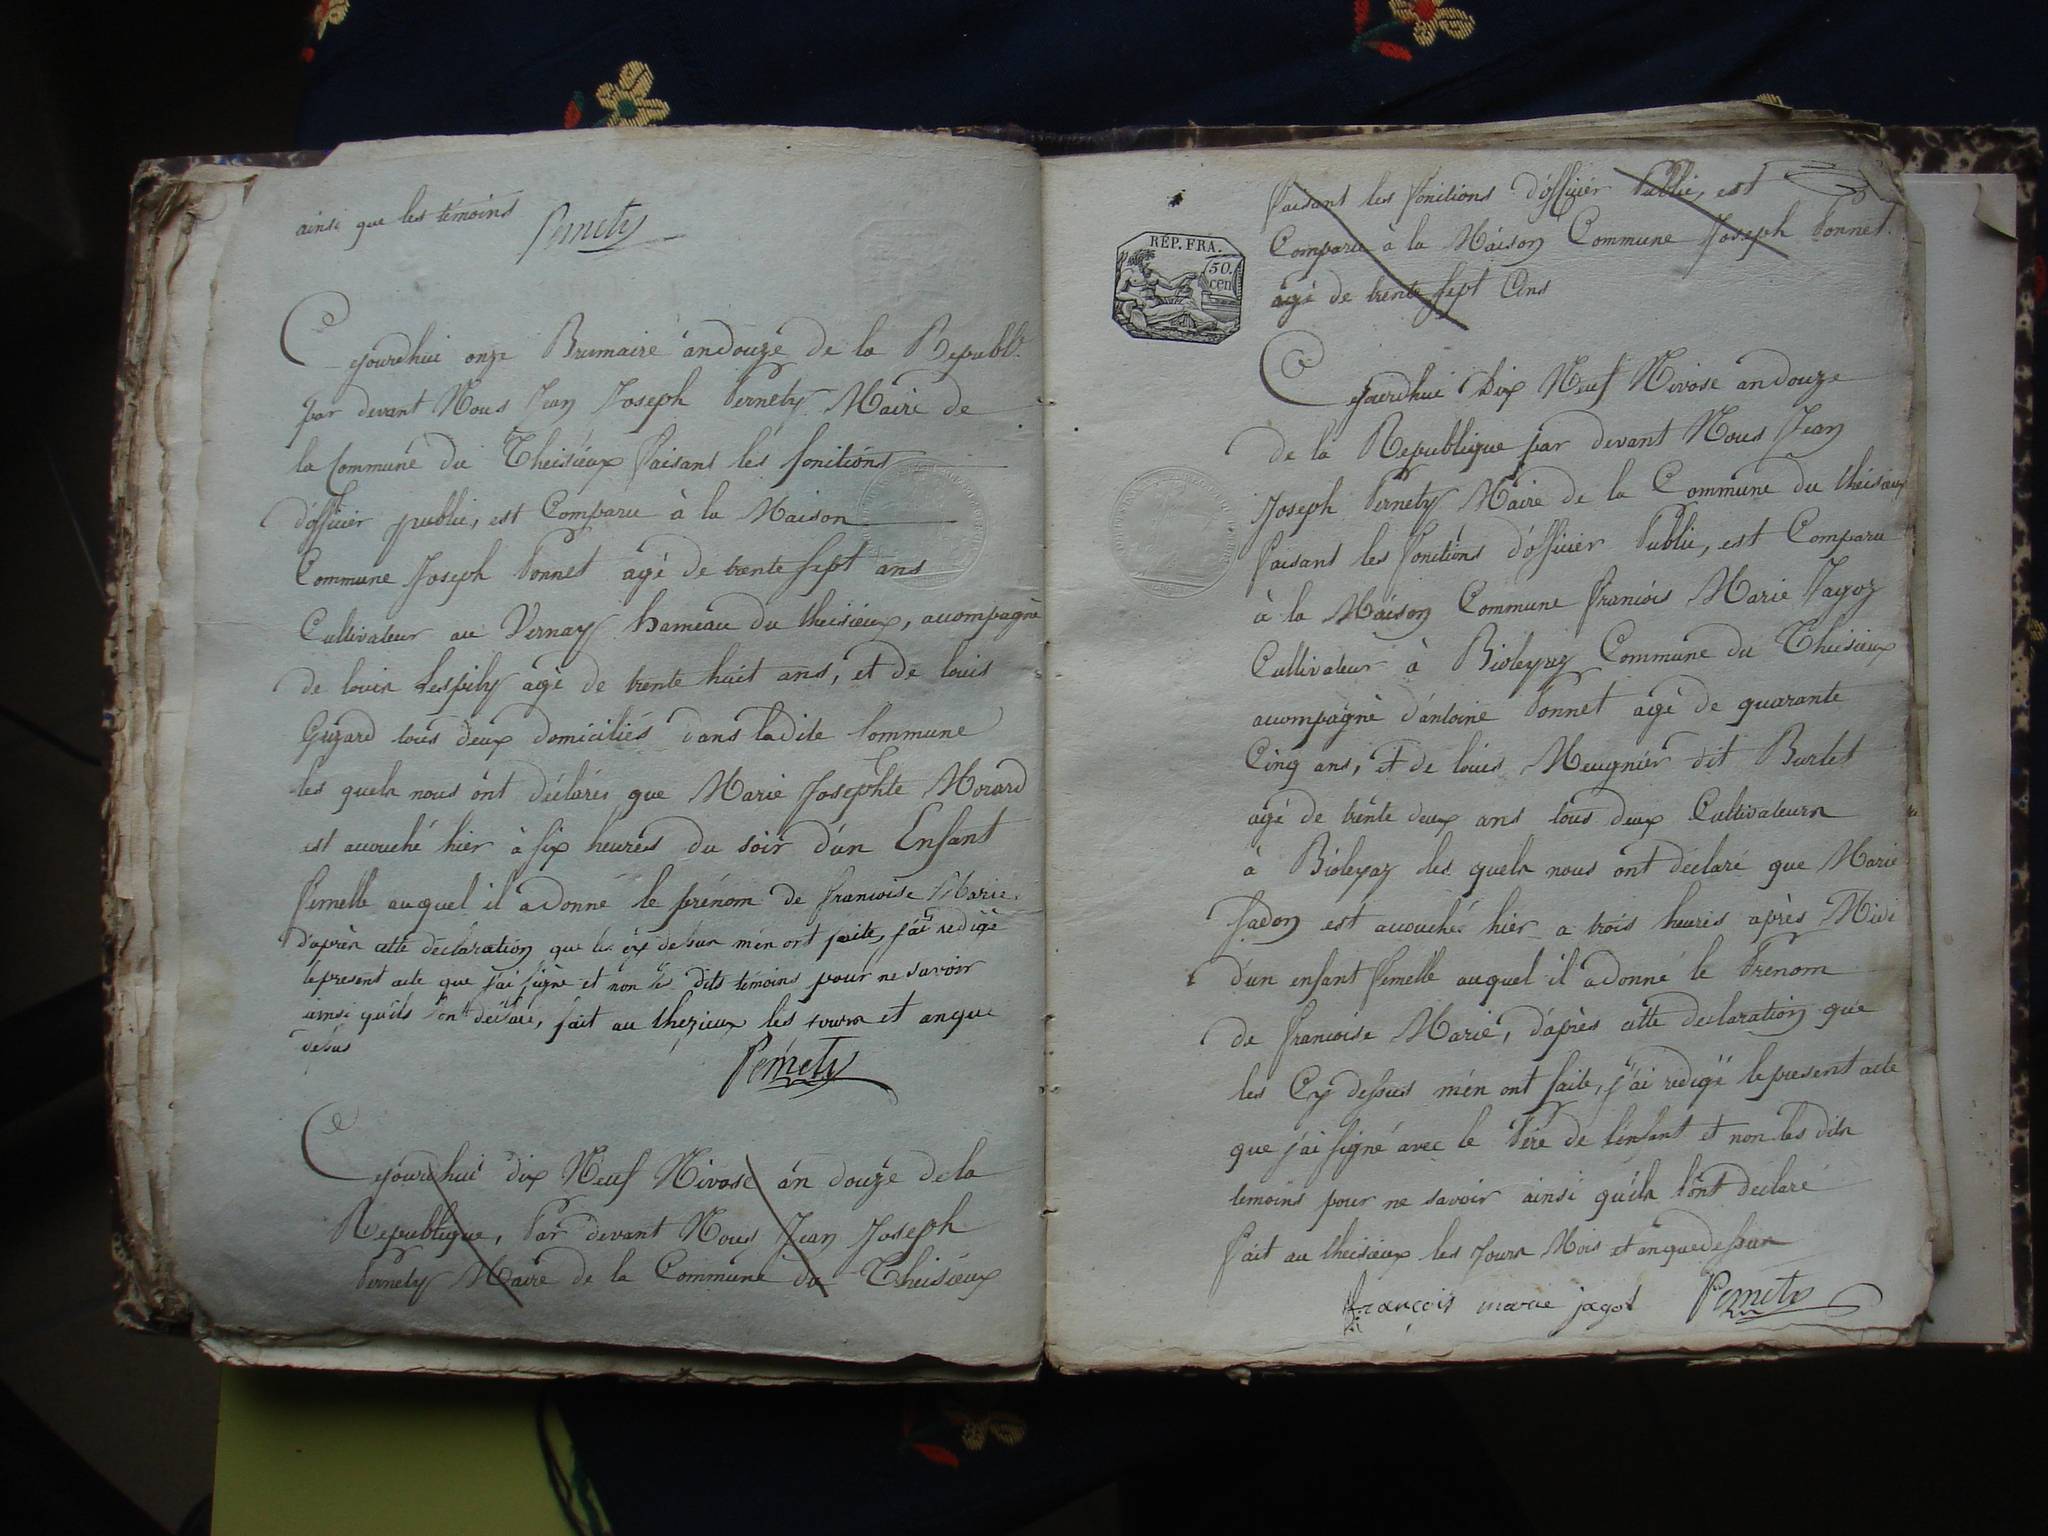 ainsi que les témoins
Pernety
Cejourdhui onze Brumaire an douze de la Republ.
par devant Nous Jean Joseph Pernety Maire de
la Commune du Theisieux faisant les fonitions
d'officier public, est Comparu à la Maison
Commune Joseph Ponnet agé de trente sept ans
Cultivateur au Vernay hameau du theisieux, accompagné
de louis Lespily agé de trente huit ans, et de louis
Guzard tous deux domiciliés dans ladite Commune
les quels nous ont déclarés que Marie Josephte Morard
est accouché hier à six heures du soir d'un Enfant
femelle auquel il a donné le prénom de francoise Marie.
d'après cette déclaration que les cy dessus m'en ont faite, j'ai redigé
le present acte que j'ai signé et non les dits témoins pour ne savoir
ainsi qu'ils l'ont déclaré, fait au thezieux les jours et an que
dessus
Pernety
Cejourdhui dix Neuf Nivose an douze de la
Republique, Par devant Nous Jean Joseph
Pernety Maire de la Commune du Theisieux
faisant les fonitions d'officier Public, est
Comparu à la Maison Commune Joseph Ponnet
agé de trente sept Ans
RÉP. FRA.
50.
cen
Cejourdhui Dix Neuf Nivose an douze
de la Republique par devant Nous Jean
Joseph Pernety Maire de la Commune du theisieux
faisant les fonitions d'officier Public, est Comparu
à la Maison Commune francois Marie Jagoz
Cultivateur à Bioleyaz Commune du Theisieux
accompagné d'antoine Ponnet agé de quarante
Cinq ans, et de louis Meugnier dit Burlet
agé de trente deux ans tous deux Cultivateurs
à Bioleyaz les quels nous ont déclaré que Marie
Jadon est accouché hier a trois heures après Midi
d'un enfant femelle auquel il a donné le Prenom
de francoise Marie, d'après cette declaration que
les Cy dessus m'en ont faite, j'ai redigé le present acte
que j'ai signé avec le Père de l'enfant et non les dits
temoins pour ne savoir ainsi qu'ils l'ont déclaré
fait au theisieux les Jours Mois et an que dessus
françois marie jagot Pernety